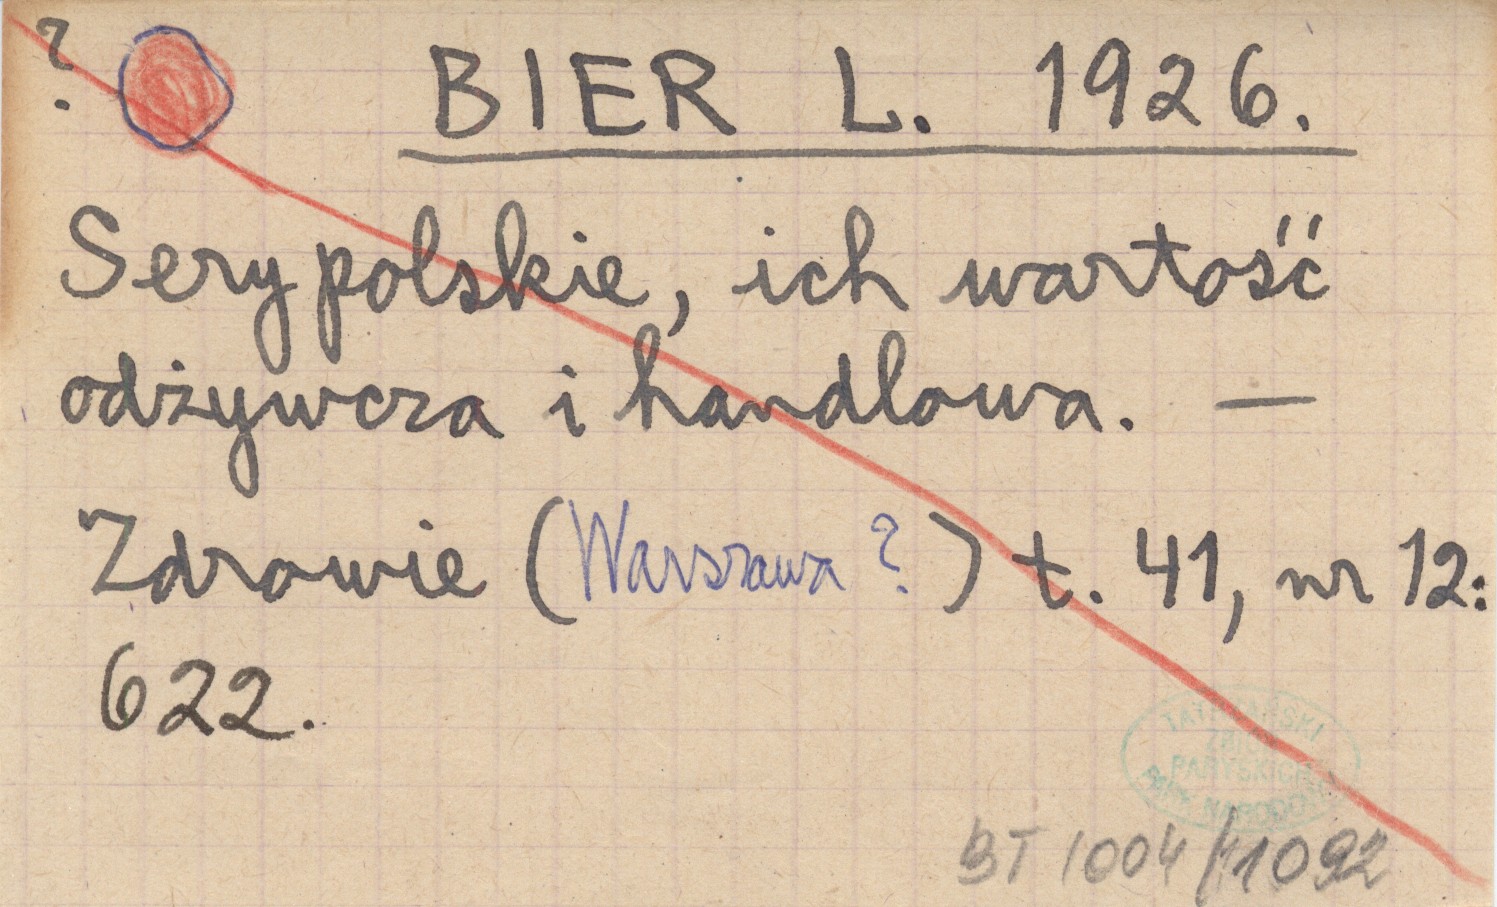 ?
BIER L. 1926.
Sery polskie, ich wartość
odżywcza i handlowa. —
Zdrowie (Warszawa ?) t. 41, nr 12:
622.
TATRZAŃSKI
ZBIORY
PARYSKICH
PARK NARODOWY
BT 1004/11092